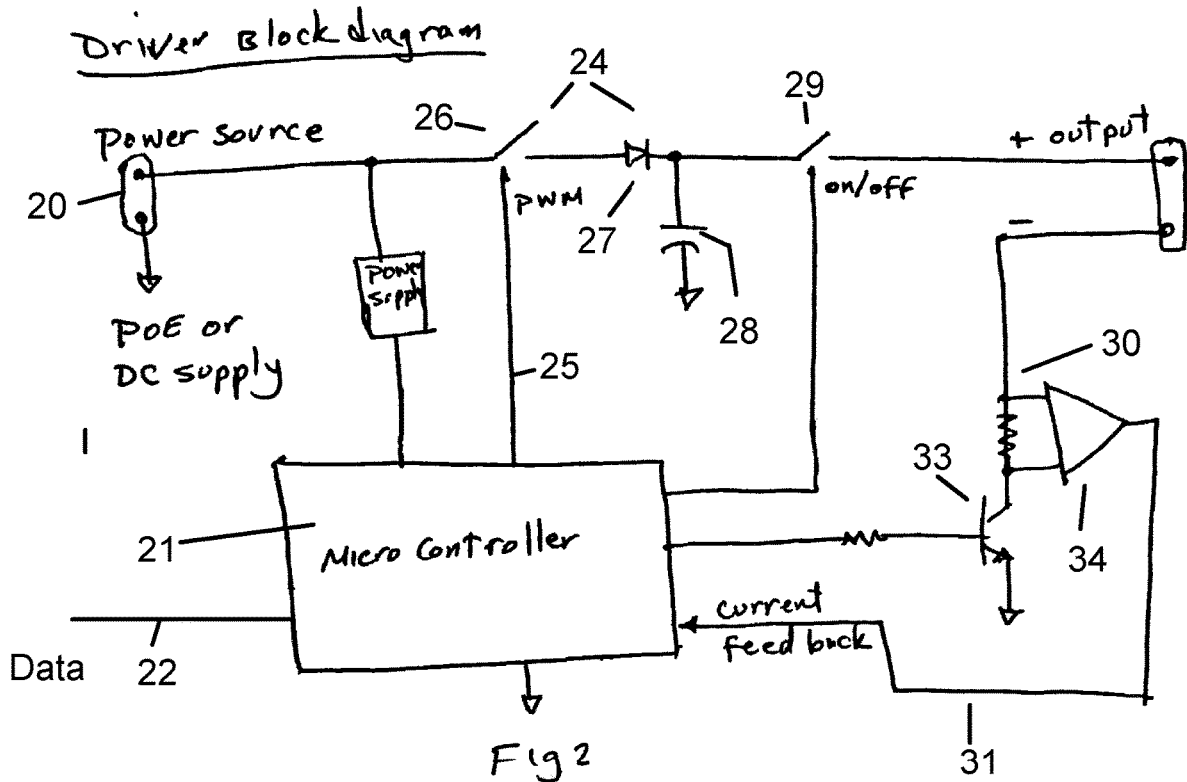 Driver Block diagram
24
29
26
Power source
+ output
20
PWM
on/off
27
−
Power
supply
28
PoE or
DC supply
25
30
33
21
Micro Controller
34
current
feed back
Data
22
Fig 2
31